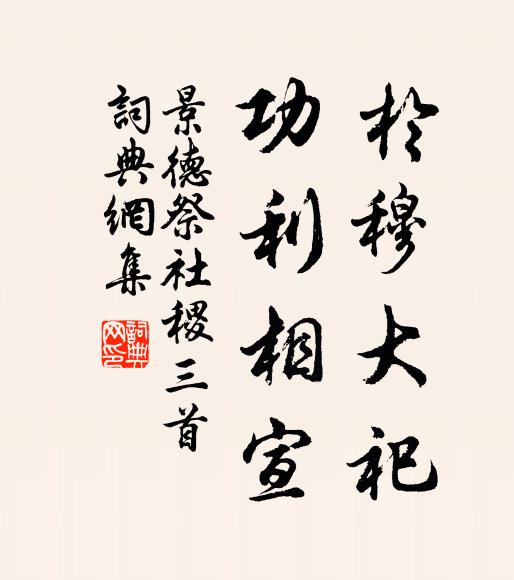 於穆大祀
功利相宣
景德祭社稷三首
詞典網集
詞典網印